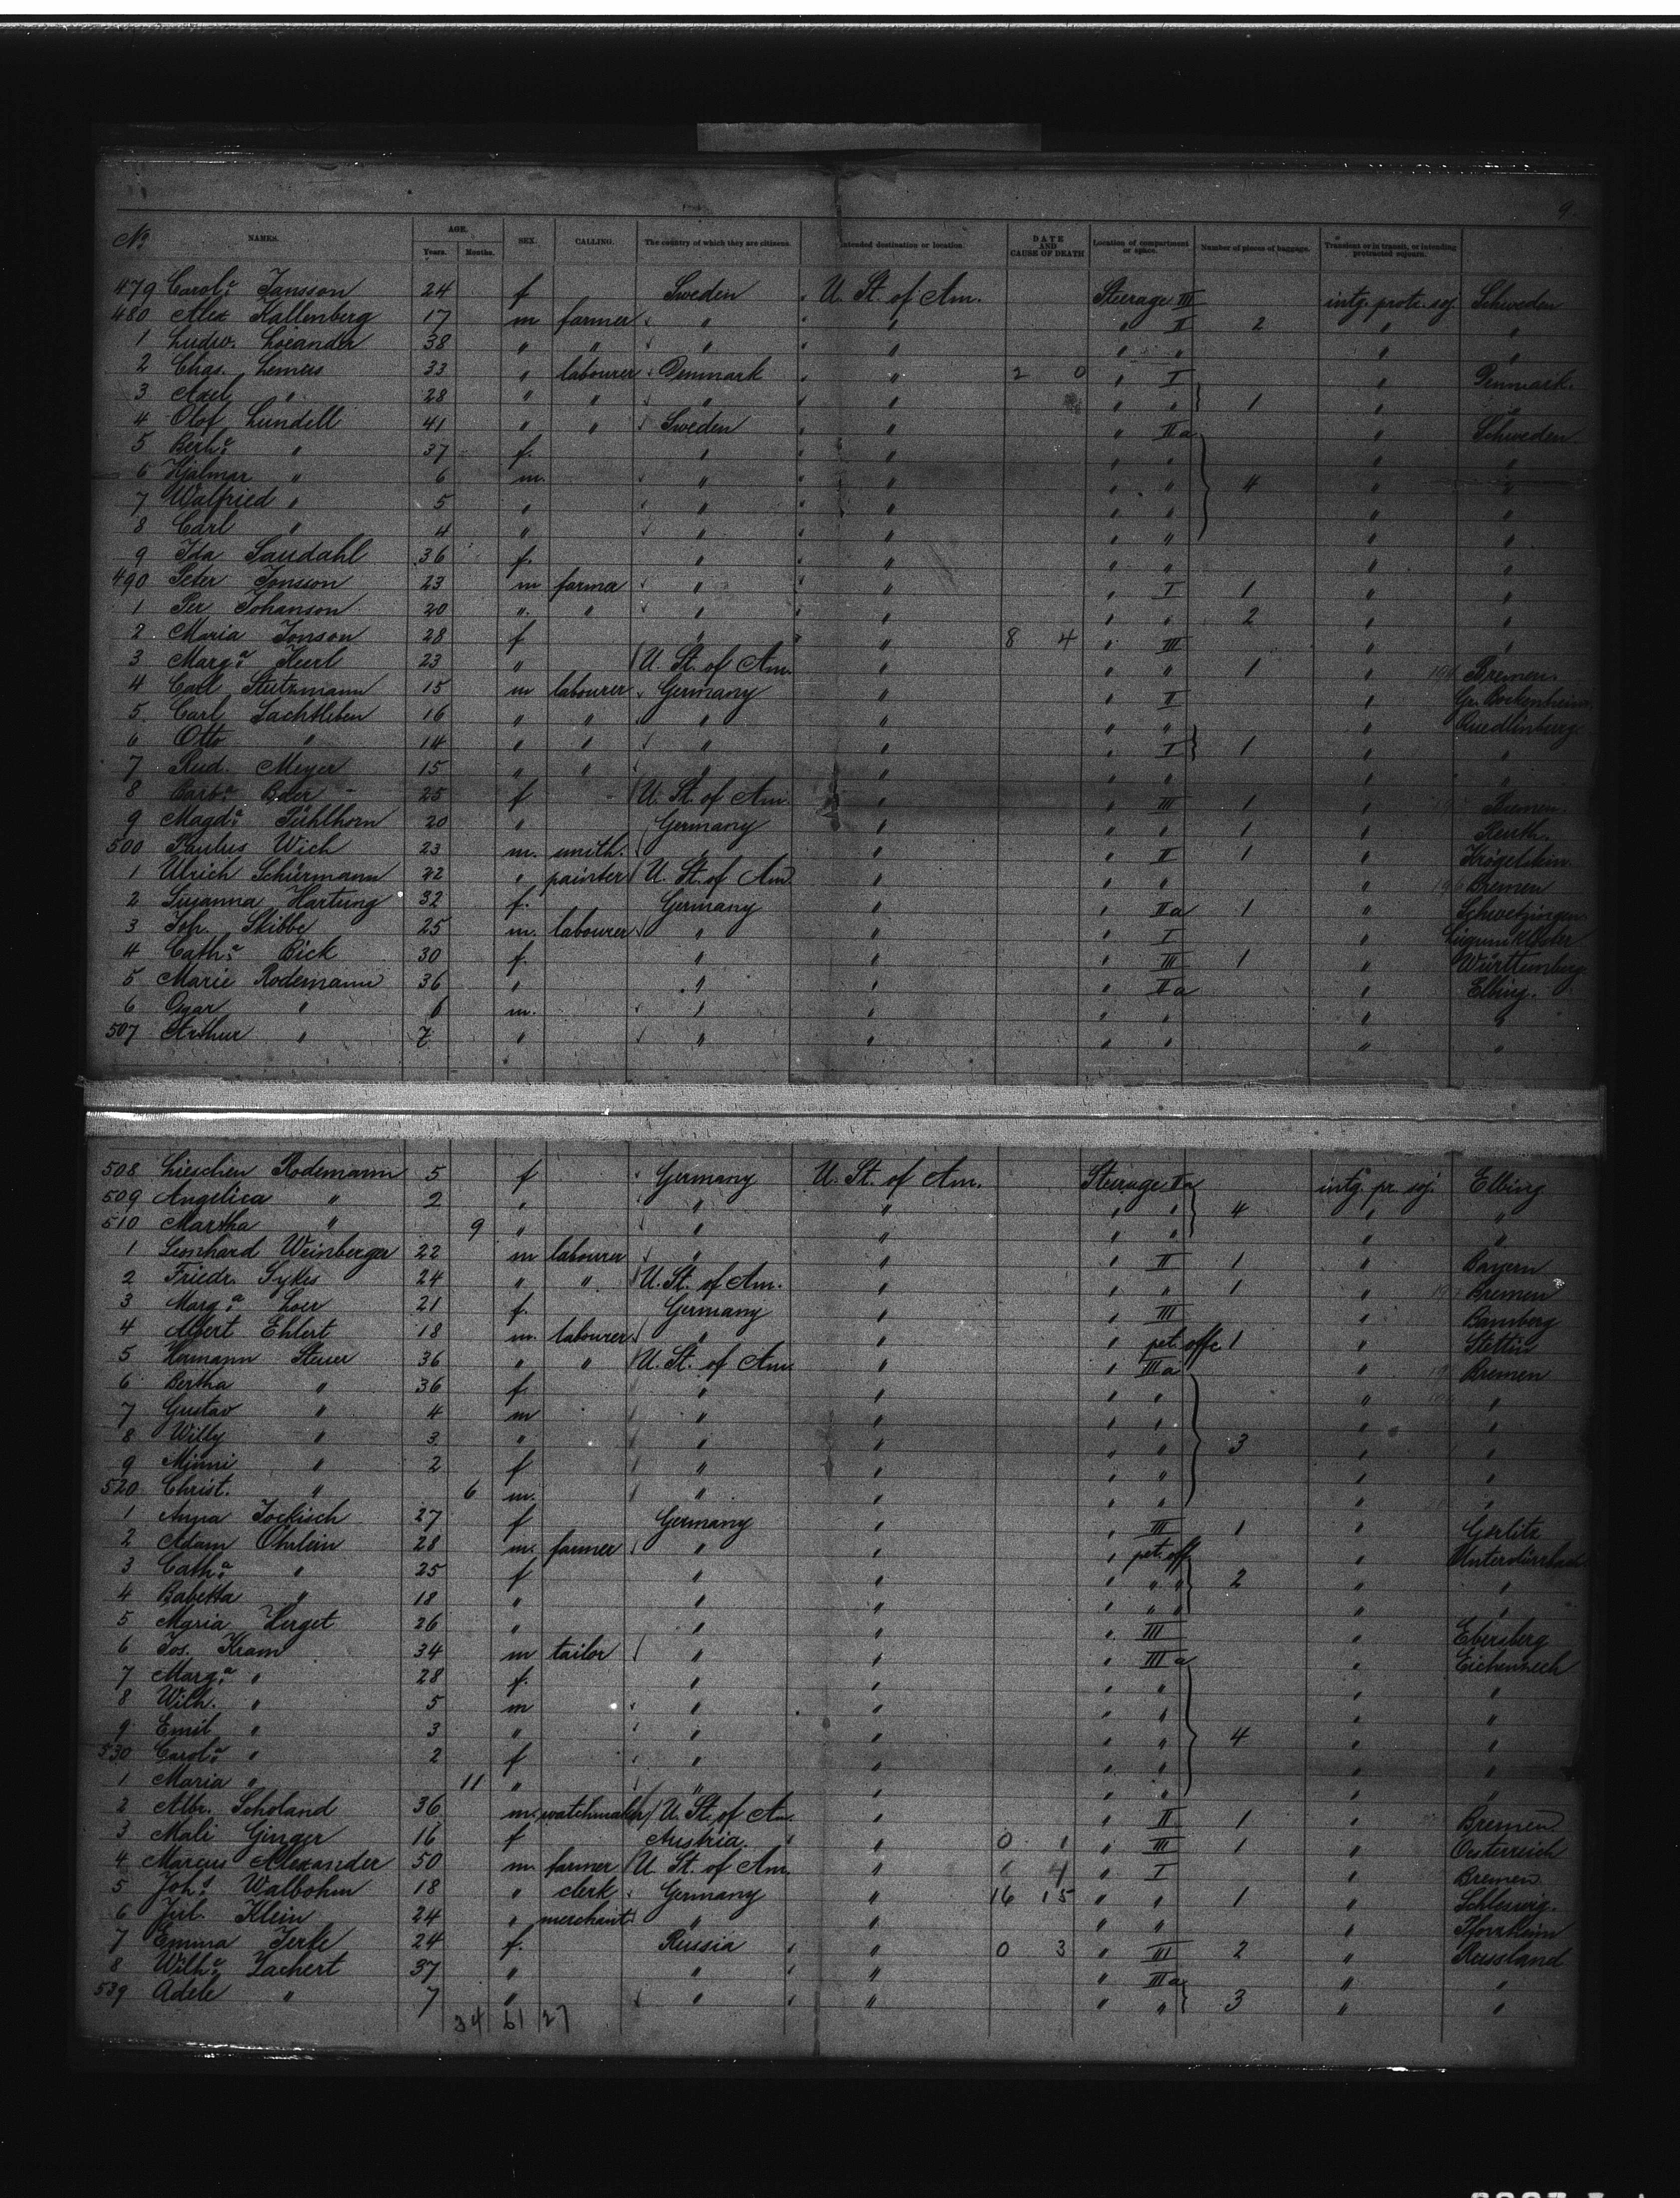 9.
No. NAMES. AGE. Years. Months. SEX. CALLING. The country of which they are citizens. Intended destination or location. DATE AND CAUSE OF DEATH Location of compartment or space. Number of pieces of baggage. Transient or in transit, or intending protracted sojourn.
479 Carola Jansson 24 f Sweden U. St. of Am. Steerage III intg. protr. soj. Schweden
480 Alex Kallenberg 17 m farmer " " " II 2 " "
1 Ludw. 38 " " " " " " " "
2 Chas. 33 " labourer Denmark " 2 0 " I " Denmark.
3 Axel " 28 " " " " " " 1 " "
4 Olof Lundell 41 " " Sweden " " IIa " Schweden
5 Bertha " 37 f. " " " " " "
6 Hjalmar " 6 m. " " " " 4 " "
7 Walfried " 5 " " " " " " "
8 Carl " 4 " " " " " " "
9 Ida Sandahl 36 f. " " " " " "
490 Peter Jonsson 23 m farmer " " " I 1 " "
1 Per Johanson 20 " " " " " " 2 " "
2 Maria Jonson 28 f " " 8 4 " III " "
3 Marga Keerl 23 " U. St. of Am. " " " 1 " Bremen.
4 Carl Stutzmann 15 m labourer Germany " " II " Gr. Bockenheim.
5. Carl Sachtleben 16 " " " " " " " Quedlinburg
6 Otto " 14 " " " " " I 1 " "
7 Rud. Meyer 15 " " " " " " " "
8 Barba 25 f U. St. of Am. " " III 1 " Bremen.
9 Magda Pühlhorn 20 " Germany " " " 1 " Reuth.
500 Paulus Wich 23 m. smith. " " " II 1 "
1 Ulrich Schürmann 22 " painter U. St. of Am. " " " " Bremen
2 Susanna Hartung 32 f. Germany " " IIa 1 " Schwetzingen
3 Joh. Skibbe 25 m. labourer " " " I " Lügumkloster
4 Catha Bick 30 f. " " " III 1 " Württemberg
5 Marie Rodemann 36 " " " " IIa Elbing.
6 " 6 m. " " " " " "
507 Arthur " 7 " " " " " " "
508 Lieschen Rodemann 5 f Germany U. St. of Am. Steerage IIa intg. pr. soj. Elbing
509 Angelica " 2 " " " " " 4 " "
510 Martha " 9 " " " " " " "
1 Leonhard Weinberger 22 m labourer " " " II 1 " Bayern
2 Friedr. Sykes 24 " " U. St. of Am. " " " 1 " Bremen
3 Marga Loer 21 f. Germany " " III " Bamberg
4 Albert Ehlert 18 m. labourer " " " pet. offc 1 " Stettin
5 Hermann Steuer 36 " " U. St. of Am. " " IIIa " Bremen
6 Bertha " 36 f. " " " " " "
7 Gustav " 4 m " " " " " "
8 Willy " 3 " " " " " 3 " "
9 Minni " 2 f " " " " " "
520 Christ. " 6 m. " " " " " "
1 Anna Jockisch 27 f Germany " " III 1 " Görlitz
2 Adam Öhrlein 28 m. farmer " " " pet. off. " Unterdürrbach
3 Catha " 25 f " " " " " 2 " "
4 Babetta " 18 " " " " " " " "
5 Maria Herget 26 " " " " III " Ebersberg
6 Jos. Kram 34 m tailor " " " IIIa " Eichenzell
7 Marga " 28 f. " " " " " "
8 Wilh. " 5 m " " " " " "
9 Emil " 3 " " " " " 4 " "
530 Carola " 2 f " " " " " "
1 Maria " 11 " " " " " " "
2 Albr. Scholand 36 m. watchmaker U. St. of Am. " " II 1 " Bremen
3 Mali Ginger 16 f Austria. " 0 1 " III 1 " Oesterreich
4 Marcus Alexander 50 m. farmer U St. of Am. " 4 " I " Bremen
5 Johs. Walbohm 18 " clerk Germany " 16 15 " " 1 " Schleswig.
6 Jul. Klein 24 " merchant " " " " " Pforzheim
7 Emma Jerke 24 f. Russia " 0 3 " III 2 " Russland
8 Wilha Zachert 37 " " " " IIIa " "
539 Adele " 7 " " " " " 3 " "
34 61 27